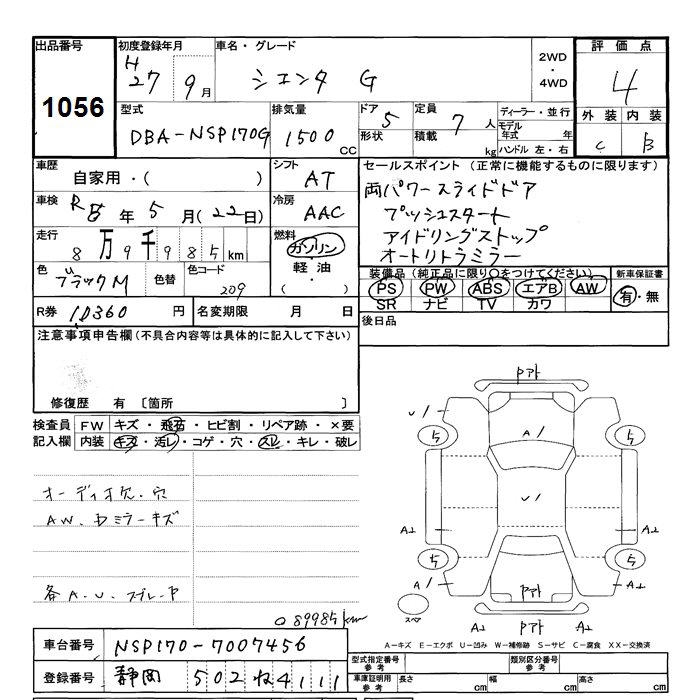 出品番号 初度登録年月 車名・グレード 評価点
1056 H27 9月 シエンタ G 2WD・4WD 4
型式 排気量 ドア 5 定員 7人 ディーラー・並行 外装 内装
DBA-NSP170G 1500cc 形状 積載 kg モデル年式 年 C B
ハンドル 左・右
車歴 自家用・( ) シフト AT セールスポイント (正常に機能するものに限ります)
車検 R8年5月(22日) 冷房 AAC 両パワースライドドア
プッシュスタート
走行 8万9千985km 燃料 ガソリン・軽油・( ) アイドリングストップ
オートリトラミラー
色 ブラックM 色替 色コード 209 装備品 (純正品に限り○をつけてください) 新車保証書
PS PW ABS エアB AW 有・無
SR ナビ TV カワ
R券 10360円 名変期限 月 日 後日品
注意事項申告欄(不具合内容等は具体的に記入して下さい)
修復歴 有 〔箇所 〕
検査員記入欄 FW キズ・飛石・ヒビ割・リペア跡・×要
内装 キズ・汚レ・コゲ・穴・スレ・キレ・破レ
オーディオ欠・穴
AW、Dミラーキズ
各A、U、スプレーP
089985km
Pアト
U1
5 5
A1
U1
A2 A2
5 5
A1 Pアト A2
スペア
A2 Pアト A2
A-キズ E-エクボ U-凹み W-補修跡 S-サビ C-腐食 XX-交換済
車台番号 NSP170-7007456
型式指定番号 参考 類別区分番号 参考
登録番号 静岡 502 ね 4111
車庫証明用 参考 長さ cm 幅 cm 高さ cm